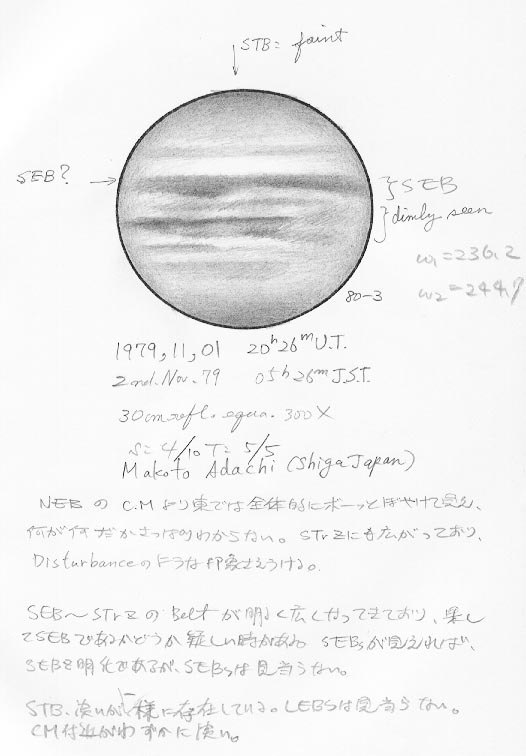 STB = faint
SEB?
SEB
dimly seen
ω1 = 236.2
ω2 = 244.9
80-3
1979, 11, 01 20h 26m U.T.
2nd. Nov. 79 05h 26m J.S.T.
30cm refl. equa. 300X
S = 4/10 T = 5/5
Makoto Adachi (Shiga Japan)
NEBの C.Mより東では全体的にボーッとぼやけて見え、
何が何だかさっぱりわからない。STrZにも広がっており、
Disturbanceのような印象さえうける。
SEB〜STrZのBeltが明るく広くなってきており、果し
てSEBであるかどうか疑しい時がある。SEBsが見えれば、
SEBと明化であるが、SEBsは見当らない。
STB、淡いが一様に存在している。LEBsは見当らない。
CM付近がわずかに濃い。